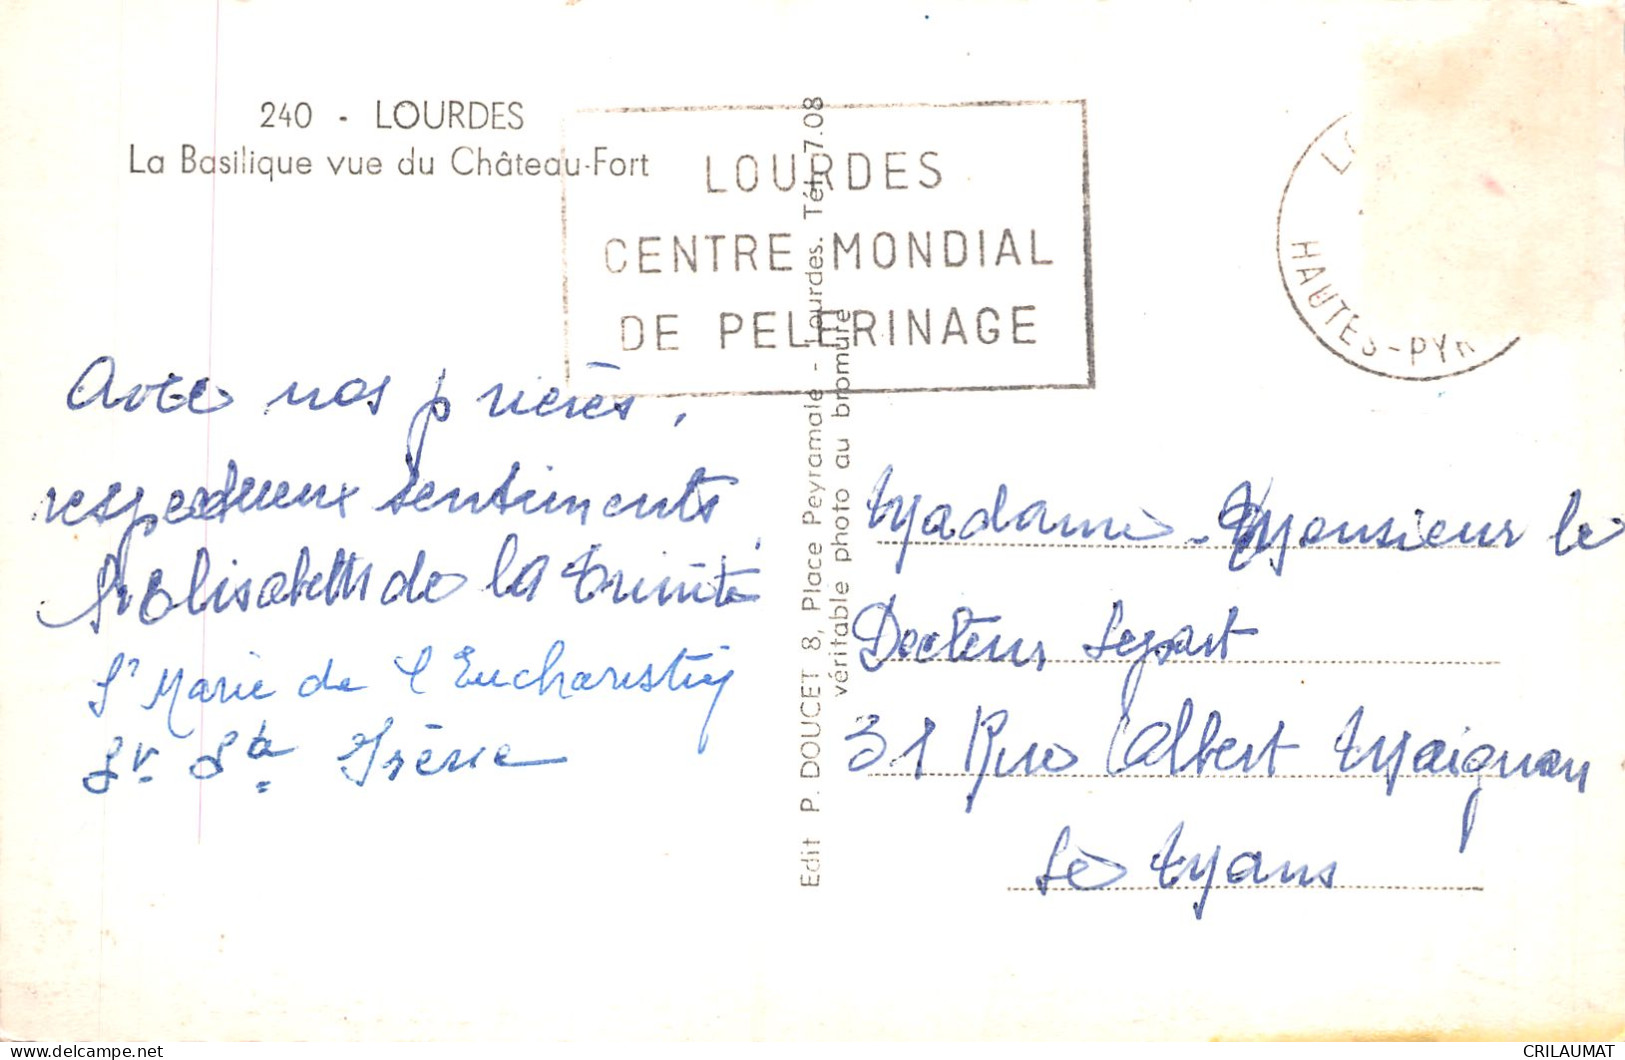 240 - LOURDES
La Basilique vue du Château-Fort
LOURDES
CENTRE MONDIAL
DE PELERINAGE
HAUTES-PYR
Avec nos prières,
respectueux sentiments,
Sr Elisabeth de la Trinité
Sr Marie de l'Eucharistie
Sr Ste Irène
Edit P. DOUCET 8, Place Peyramale - Lourdes. Tél. 7.08
véritable photo au bromure
Madame - Monsieur le
Docteur
31 Rue Albert Maignan
Le Mans
CRILAUMAT